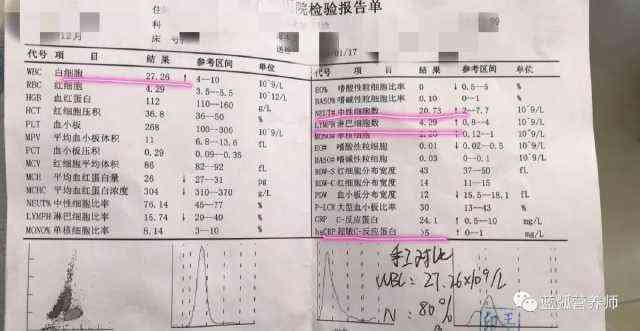 院检验报告单
住
科
12月
床号
01/17
代号 项目 结果 参考区间 单位
WBC 白细胞 27.26 ↑ 4—10 10^9/L
RBC 红细胞 4.29 3.5—5.5 10^12/L
HGB 血红蛋白 112 110—160 g/L
HCT 红细胞压积 36.8 36—50 %
PLT 血小板 268 100—300 10^9/L
MPV 平均血小板体积 11 6.8—13.6 fL
PCT 血小板压积 0.29 0.09—0.35 %
MCV 红细胞平均体积 86 82—92 fL
MCH 平均血红蛋白量 26 ↓ 27—31 pg
MCHC 平均血红蛋白浓度 304 ↓ 310—370 g/L
NEUT% 中性细胞比率 76.14 45—77 %
LYMPH 淋巴细胞比率 15.74 ↓ 20—40 %
MONO% 单核细胞比率 8.14 3—10 %
代号 项目 结果 参考区间 单位
EO% 嗜酸性粒细胞比率 0 ↓ 0.5—5 %
BASO% 嗜碱性粒细胞比率 0.10 0—1 %
NEUT# 中性细胞数 20.73 ↑ 2—7.7 10^9/L
LYMPH 淋巴细胞数 4.29 ↑ 0.8—4 10^9/L
MONO# 单核细胞数 2.20 ↑ 0.12—1 10^9/L
EO# 嗜酸性粒细胞 ↓ 0.02—0.5 10^9/L
BASO# 嗜碱性粒细胞 0—0.1 10^9/L
RDW-S 红细胞分布宽度 43 37—50 fL
RDW-C 红细胞分布宽度 14 11—15
PDW 血小板分布宽度 12 ↓ 15.5—18.1 fL
P-LCR 大型血小板比率 30 13—43 %
CRP C-反应蛋白 24.1 ↑ 0.5—10 mg/L
hsCRP 超敏C-反应蛋白 >5 ↑ 0—1 mg/L
手工对比
WBC: 27.26×10^9/L
N: 80%
蓝狐营养师